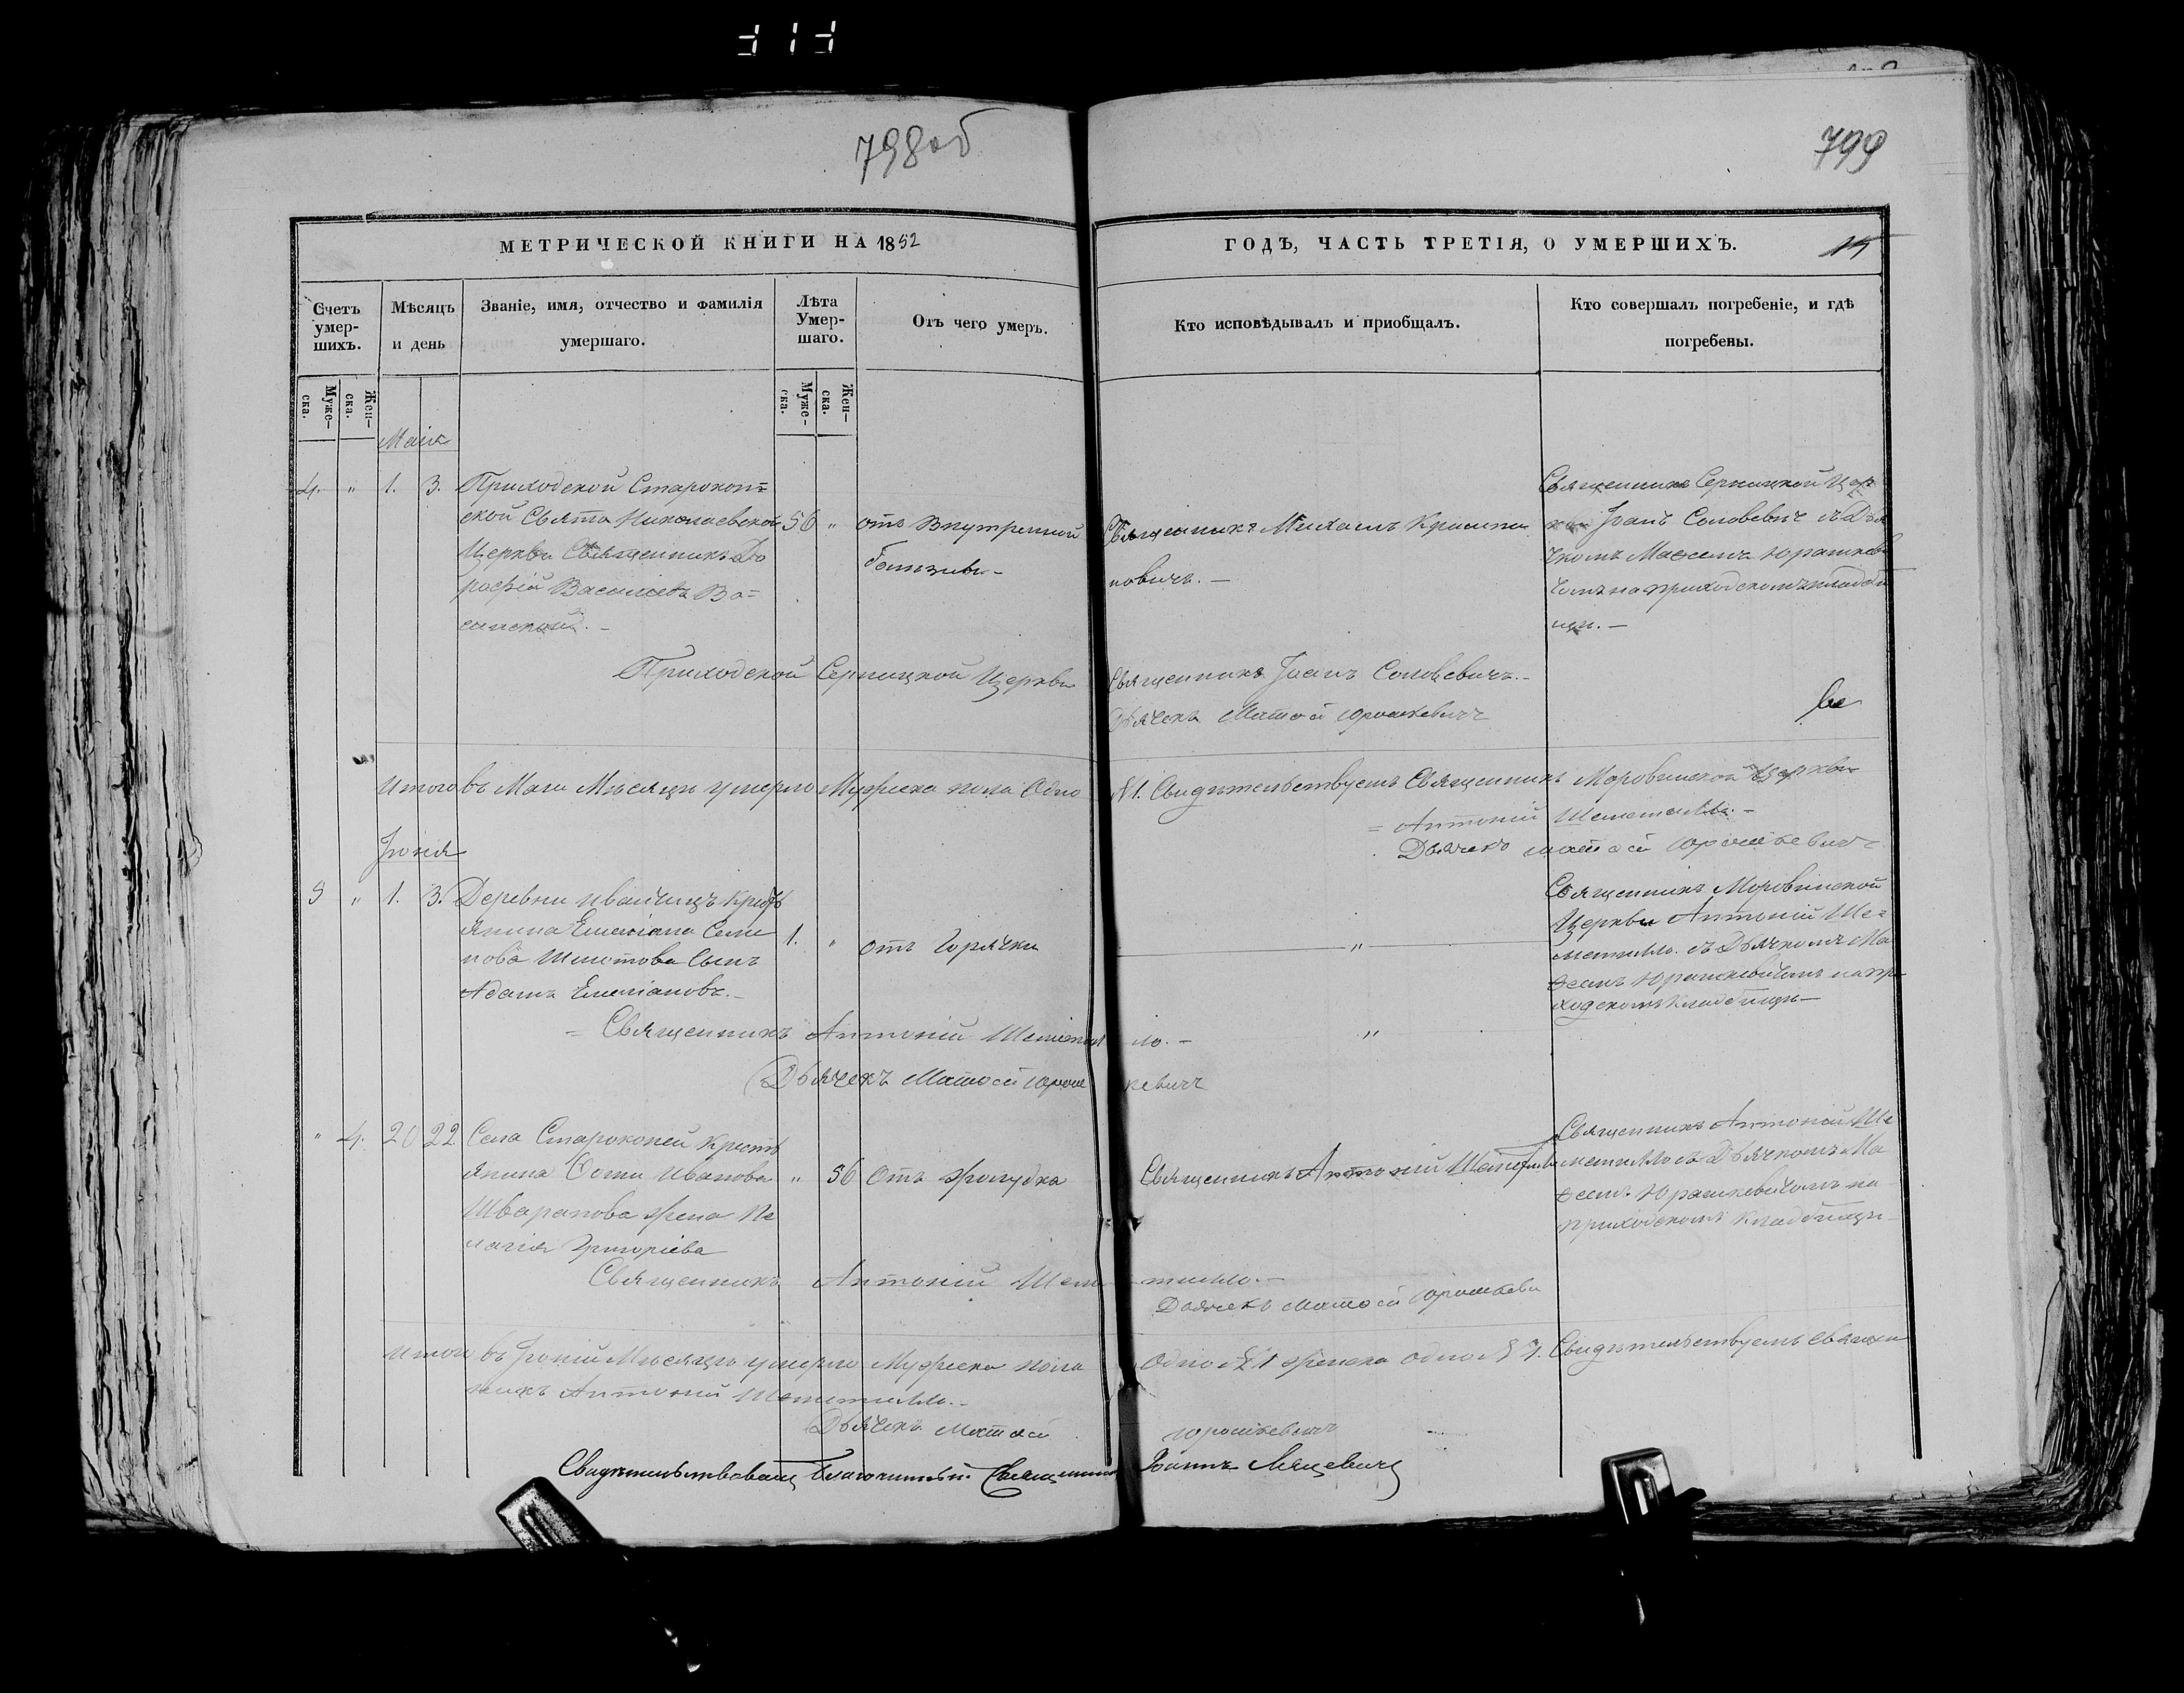 798об
799
МЕТРИЧЕСКОЙ КНИГИ НА 1852
ГОДЪ, ЧАСТЬ ТРЕТІЯ, О УМЕРШИХЪ.
Счетъ умер-шихъ.
Мѣсяцъ и день
Званіе, имя, отчество и фамилія умершаго.
Лѣта Умер-шаго.
Отъ чего умеръ.
Кто исповѣдывалъ и приобщалъ.
Кто совершалъ погребеніе, и гдѣ погребены.
Муже-ска.
Жен-ска.
Муже-ска.
Жен-ска.
Маія
4. " 1. 3.
Приходской Старокон=
ской Свято Николаевской
Церкви Священникъ До
рофей Васильевъ
56 "
отъ внутренной
болѣзни.-
Священникъ Михаилъ
новичъ.-
Священникъ Серницкой Цер
кви Іоанъ Соловевичъ съ Дья
чкомъ Матеемъ Юрашкеви
чомъ на приходскомъ кладби
щи.-
Приходской Серницкой Церкви Священникъ Іоанъ Соловевичъ.-
Дьячекъ Матѳей Юрашкевичъ
Итого въ Маи Мѣсяцѣ умерло Мужеска пола Одно №1. Свидѣтельствуемъ Священникъ Моровинской Церкви
= Антоній Шеметилло.-
Дьячекъ Матѳей Юрашкевичъ
Іюня
5 " 1. 3.
Деревни Ивончицъ Крест
янина Емеліана Семе
нова Шмотова Сынъ
Адамъ Емеліановъ.-
1. "
отъ Горячки
"
Священникъ Моровинской
Церкви Антоній Ше=
метилло. съ Дьячкомъ Ма
ѳеемъ Юрашкевичомъ на при
ходскомъ кладбищи-
= Священникъ Антоній Шеметилло.-
"
Дьячекъ Матѳей Юрашкевичъ
" 4. 20 22
Села Староконей Крест
янина Ѳомы Иванова
Шваранова жена Пе
лагія Григоріева
" 56
Отъ желудка
Священникъ Антоній Шеметилло
Священникъ Антоній Ше
метилло съ Дьячкомъ Ма
ѳеемъ Юрашкевичомъ на
приходскомъ кладбищи-
Священникъ Антоній Шеметилло.-
Дьячекъ Матѳей Юрашкеви
Итого въ Іюній Мѣсяцъ умерло Мужеска пола Одно №1 женска одно № 1. Свидѣтельствуемъ Священ
никъ Антоній Шеметилло.-
Дьячекъ Матѳей Юрашкевичъ
Свидѣтельствовалъ Благочинный Священникъ Іоаннъ Лицевичъ